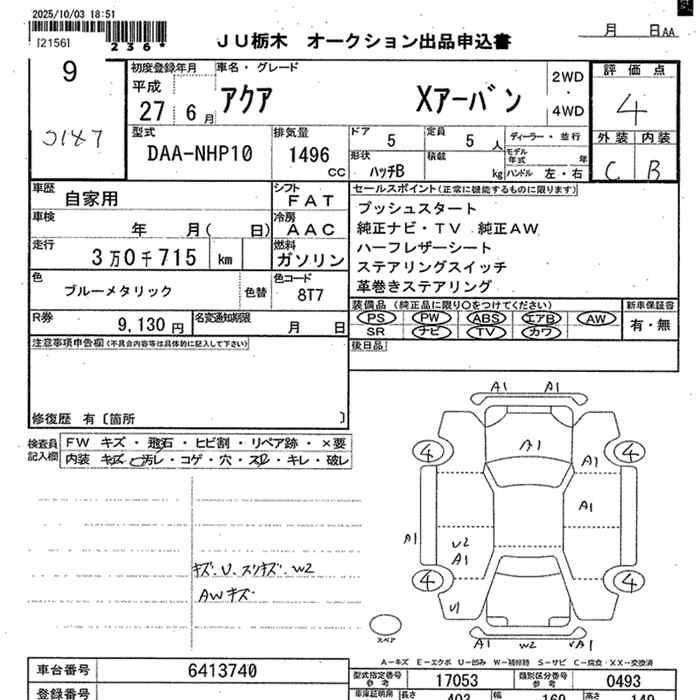 2025/10/03 18:51
[2156]
236*
JU栃木 オークション出品申込書
月 日AA
9
3187
初度登録年月
平成
27 6月
車名・グレード
アクア Xアーバン
2WD
・
4WD
評価点
4
外装 内装
C B
型式
DAA-NHP10
排気量
1496
CC
ドア 5
定員 5 人
形状 ハッチB
積載 kg
ディーラー・並行
モデル年式 年
ハンドル 左・右
車歴 自家用
シフト FAT
車検 年 月( 日)
冷房 AAC
走行 3万0千715 km
燃料 ガソリン
色 ブルーメタリック 色替
色コード 8T7
R券 9,130円
名変通知期限 月 日
セールスポイント(正常に機能するものに限ります)
プッシュスタート
純正ナビ・TV 純正AW
ハーフレザーシート
ステアリングスイッチ
革巻きステアリング
装備品 (純正品に限り○をつけてください)
PS PW ABS エアB AW
SR ナビ TV カワ
新車保証書
有・無
後日品
注意事項申告欄(不具合内容等は具体的に記入して下さい)
修復歴 有〔箇所 〕
検査員記入欄
FW キズ・飛石・ヒビ割・リペア跡・×要
内装 キズ・汚レ・コゲ・穴・スレ・キレ・破レ
キズ・U・スリキズ・W2
AWキズ
A1 A1
A1
4 4
A1
A1
A1
U2
A1
4 4
U1
A1 W2 A1
スペア
A-キズ E-エクボ U-凹み W-補修跡 S-サビ C-腐食・XX-交換済
車台番号 6413740
型式指定番号 参考 17053
類別区分番号 参考 0493
登録番号
車庫証明用 参考 長さ 403 幅 169 高さ 149